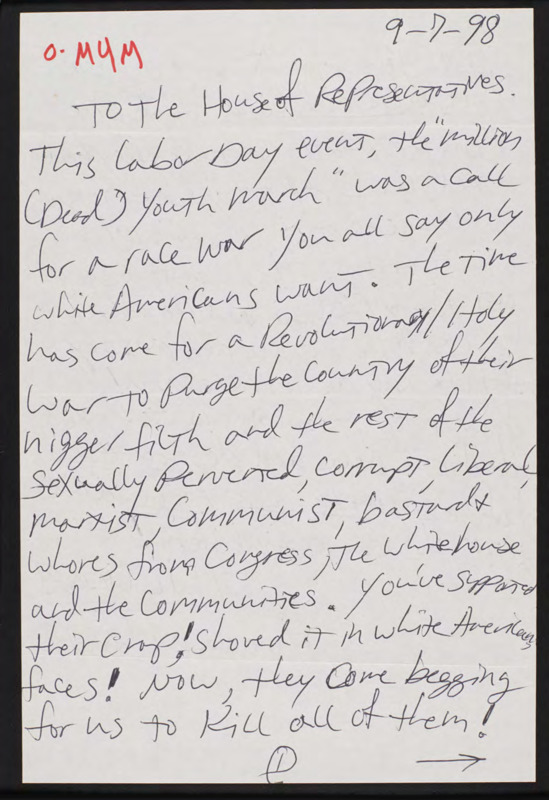 O. MYM
9-7-98
To the House of Representatives.
This Labor Day event, the "million
(Dead) Youth march" was a call
for a race war you all say only
white Americans want. The time
has come for a Revolutionary/Holy
war to Purge the Country of their
nigger filth and the rest of the
sexually Perverted, corrupt, Liberal,
marxist, Communist, bastards &
whores from Congress, the whitehouse
and the Communities. You've supported
their Crap! Shoved it in white Americans
faces! Now, they Come begging
for us to Kill all of them!
1 →